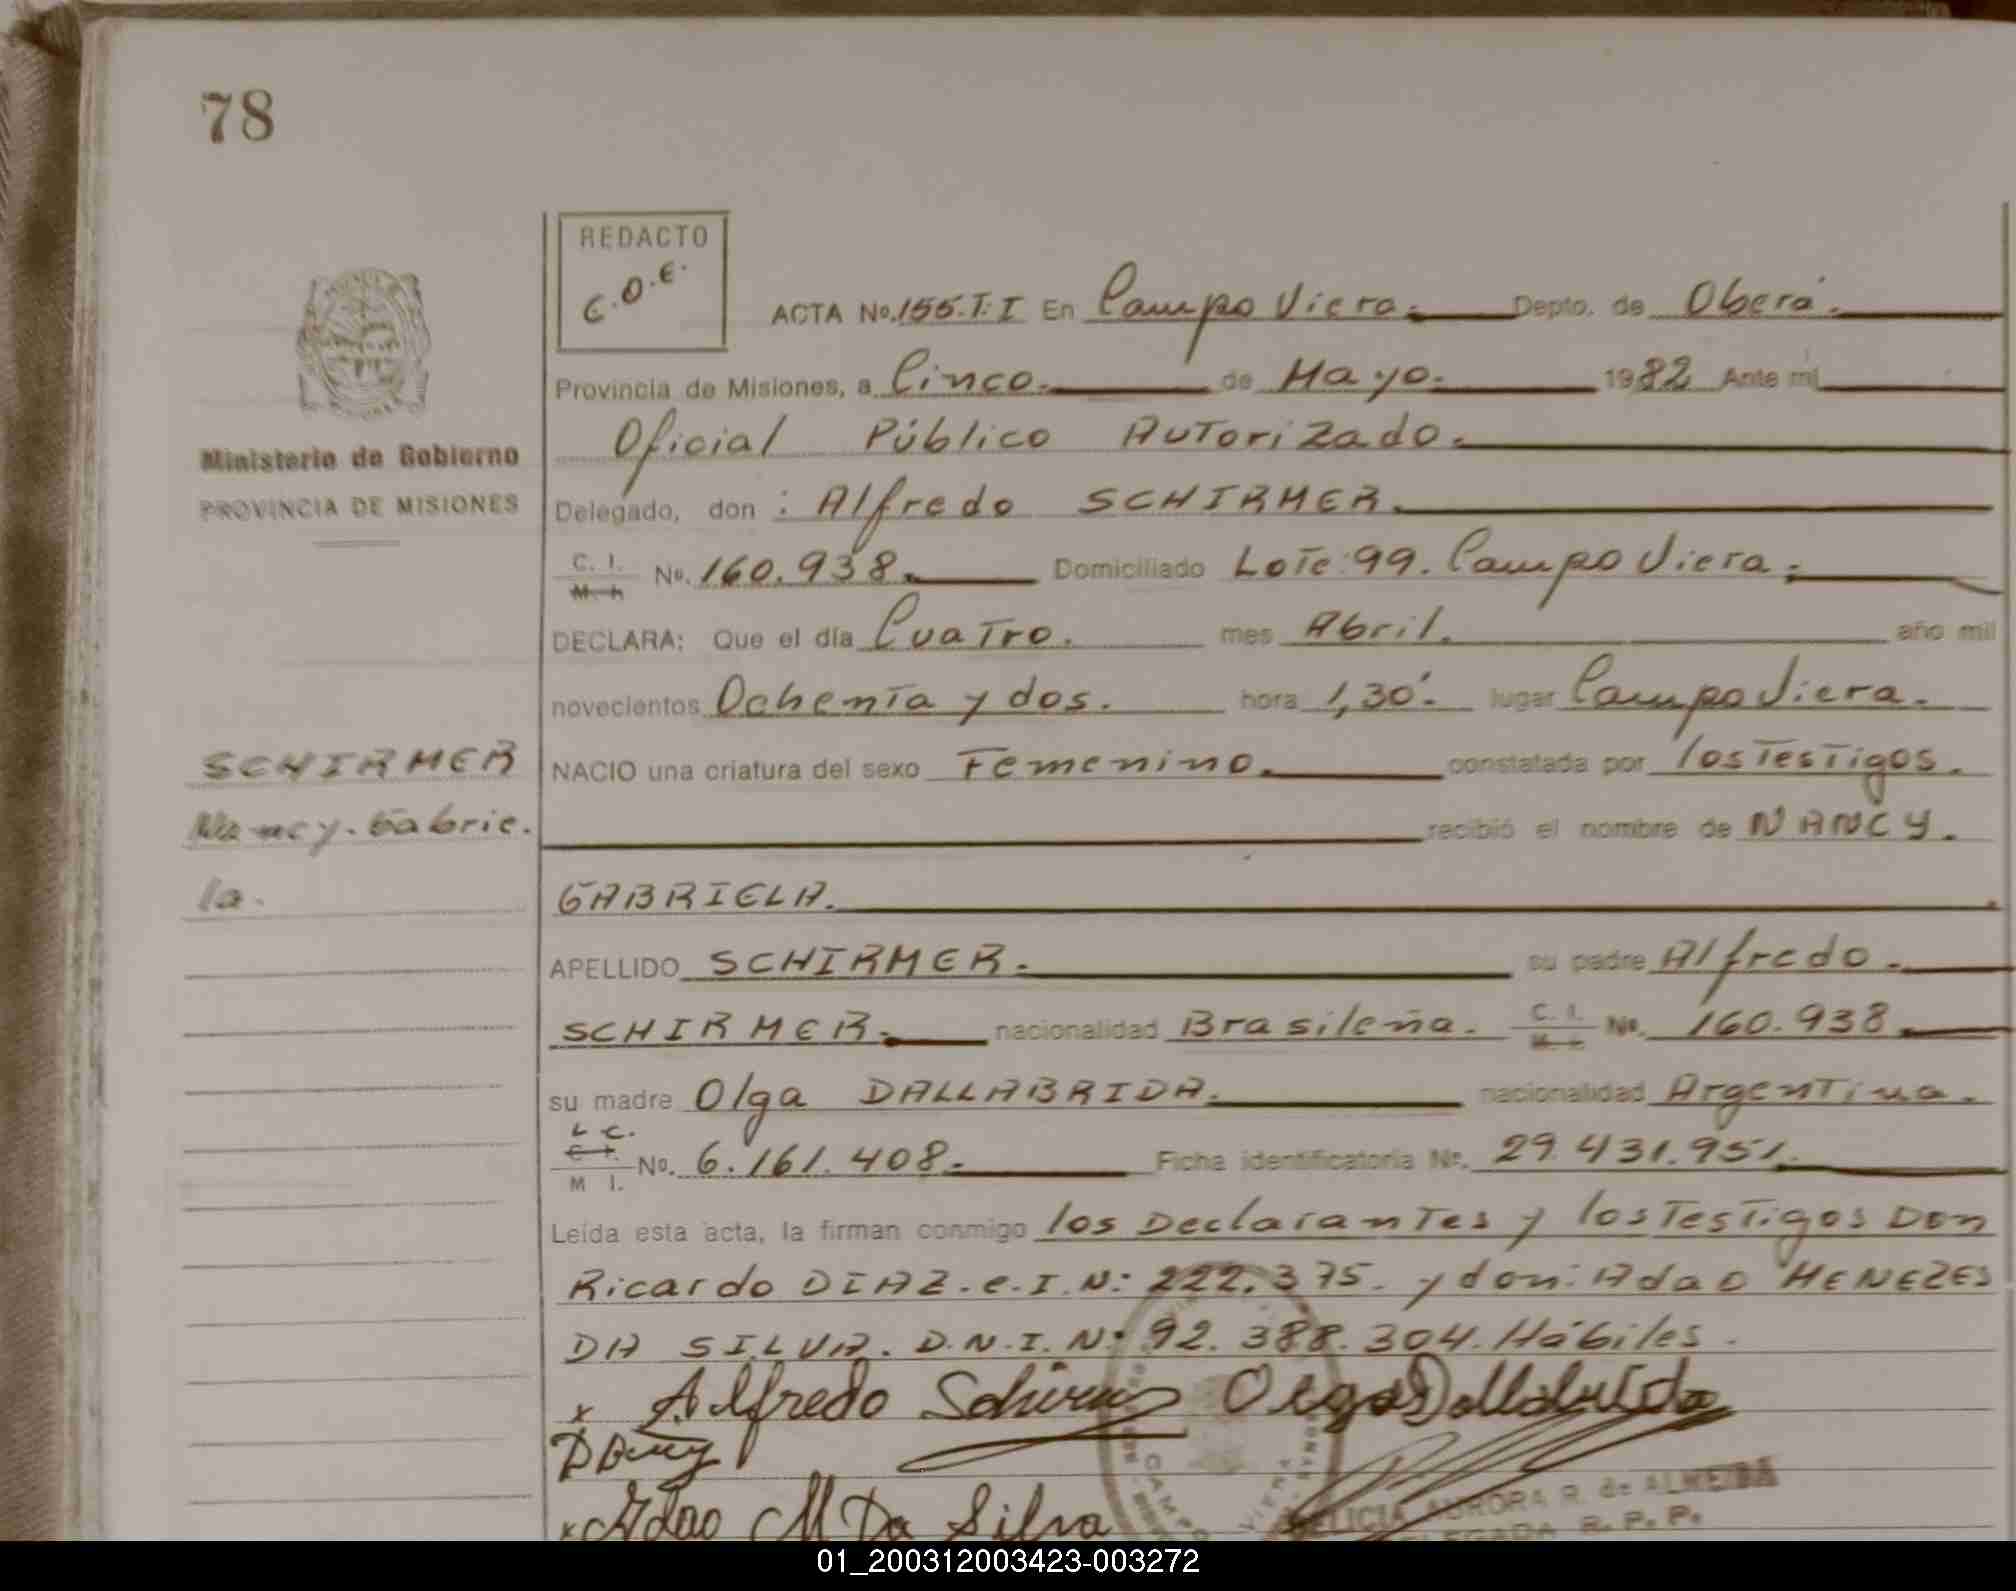 78
REDACTO
C.O.E.
ACTA No. 155.T.I En Campo Viera. Depto. de Oberá.
Provincia de Misiones, a Cinco. de Mayo. 1982 Ante mi
Oficial Público Autorizado.
Ministerio de Gobierno
PROVINCIA DE MISIONES
Delegado, don : Alfredo SCHIRMER.
C. I.
M. I. No. 160.938. Domiciliado Lote: 99. Campo Viera.
DECLARA: Que el día Cuatro. mes Abril. año mil
novecientos Ochenta y dos. hora 1,30'. lugar Campo Viera.
SCHIRMER
Nancy. Gabrie.
la.
NACIO una criatura del sexo Femenino. constatada por los Testigos.
recibió el nombre de NANCY.
GABRIELA.
APELLIDO SCHIRMER. su padre Alfredo.
SCHIRMER. nacionalidad Brasileña. C. I. M. I. No. 160.938.
su madre Olga DALLABRIDA. nacionalidad Argentina.
L C.
C I.
M I. No. 6.161.408. Ficha identificatoria No. 29.431.951.
Leída esta acta, la firman conmigo los Declarantes y los Testigos Don
Ricardo DIAZ. C. I. N: 222.375. y don: Adao MENEZES
DA SILVA. D.N.I. N: 92.388.304. Hábiles.
x Alfredo Schirmer Olga Dallabrida
x Adao M Da Silva
CAMPO VIERA
FELICIA AURORA R. de ALMEIDA
DELEGADA R. P. P.
01_200312003423-003272